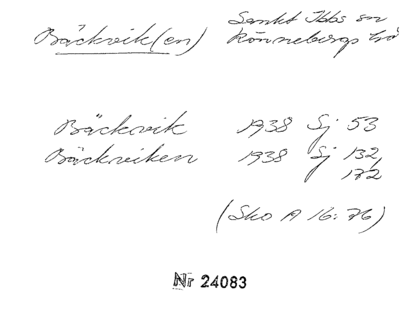 Bäckvik(en) Sankt Ibbs sn
Rönnebergs hd
Bäckvik 1938 Sj 53
Bäckviken 1938 Sj 132,
172
(Sko A 16:76)
Nr 24083